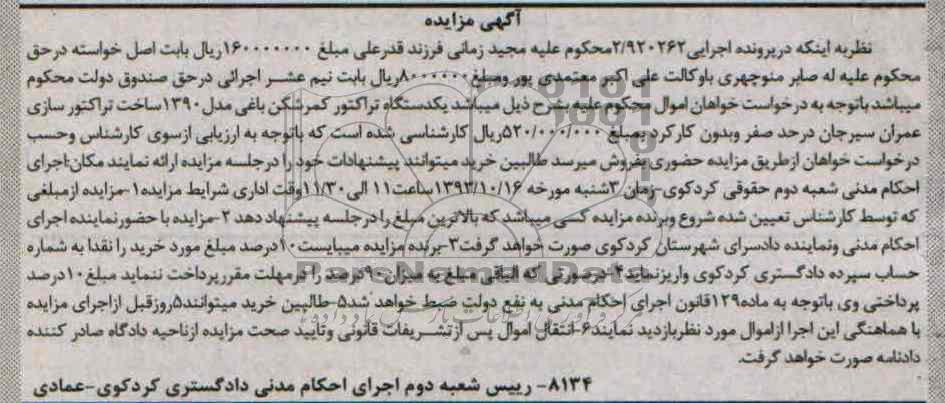 آگهی مزایده
نظربه اینکه درپرونده اجرایی۲/۹۲۰۲۶۲محکوم علیه مجید زمانی فرزند قدرعلی مبلغ ۱۶۰۰۰۰۰۰۰ریال بابت اصل خواسته درحق
محکوم علیه له صابر منوچهری باوکالت علی اکبر معتمدی پور ومبلغ۸۰۰۰۰۰۰ریال بابت نیم عشر اجرائی درحق صندوق دولت محکوم
میباشد باتوجه به درخواست خواهان اموال محکوم علیه بشرح ذیل میباشد یکدستگاه تراکتور کمرشکن باغی مدل ۱۳۹۰ساخت تراکتور سازی
عمران سیرجان درحد صفر وبدون کارکرد بمبلغ ۵۲۰/۰۰۰/۰۰۰ریال کارشناسی شده است که باتوجه به ارزیابی ازسوی کارشناس وحسب
درخواست خواهان ازطریق مزایده حضوری بفروش میرسد طالبین خرید میتوانند پیشنهادات خود را درجلسه مزایده ارائه نمایند مکان:اجرای
احکام مدنی شعبه دوم حقوقی کردکوی-زمان ۳شنبه مورخه ۱۳۹۳/۱۰/۱۶ساعت۱۱ الی۱۱/۳۰وقت اداری شرایط مزایده۱-مزایده ازمبلغی
که توسط کارشناس تعیین شده شروع وبرنده مزایده کسی میباشد که بالاترین مبلغ را درجلسه پیشنهاد دهد ۲-مزایده با حضورنماینده اجرای
احکام مدنی ونماینده دادسرای شهرستان کردکوی صورت خواهد گرفت۳-برنده مزایده میبایست۱۰درصد مبلغ مورد خرید را نقدا به شماره
حساب سپرده دادگستری کردکوی واریزنماید۴-درصورتی که الباقی مبلغ به میزان۹۰درصد را درمهلت مقررپرداخت ننماید مبلغ۱۰درصد
پرداختی وی باتوجه به ماده۱۲۹قانون اجرای احکام مدنی به نفع دولت ضبط خواهد شد۵-طالبین خرید میتوانند۵روزقبل ازاجرای مزایده
با هماهنگی این اجرا ازاموال مورد نظربازدید نمایند۶-انتقال اموال پس ازتشریفات قانونی وتایید صحت مزایده ازناحیه دادگاه صادر کننده
دادنامه صورت خواهد گرفت.
۸۱۳۴- رییس شعبه دوم اجرای احکام مدنی دادگستری کردکوی-عمادی